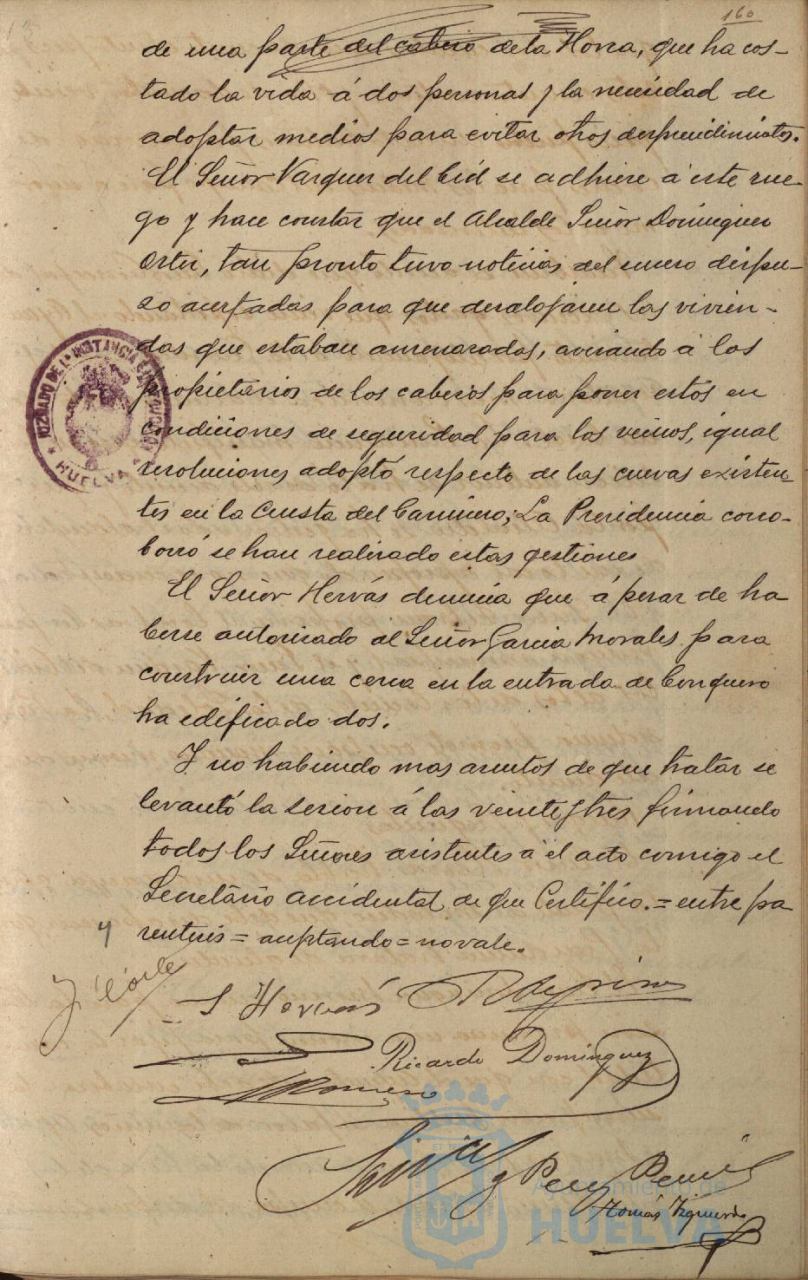 160
de una parte del cabezo de la Horca, que ha cos-
tado la vida á dos personas y la necesidad de
adoptar medios para evitar otros desprendimientos.
El Señor Vazquez del Cid se adhiere a este rue-
go y hace constar que el Alcalde Señor Dominguez
Ortiz, tan pronto tuvo noticias del suceso dispu-
so acertadas para que desalojaren las vivien-
das que estaban amenazadas, avisando á los
propietarios de los cabezos para poner estos en
condiciones de seguridad para los vecinos, igual
resoluciones adoptó respecto de las cuevas existen-
tes en la Cuesta del Carnicero; La Presidencia corro-
borró se han realizado estas gestiones
El Señor Hervás denuncia que á pesar de ha
berse autorizado al Señor Garcia Morales para
construir una cerca en la entrada de Conquero
ha edificado dos.
Y no habiendo mas asuntos de que tratar se
levantó la sesion á las veinte y tres firmando
todos los Señores asistentes a el acto comigo el
Secretario accidental de que Certifico. = entre pa
rentesis = aceptando = no vale.
JUZGADO DE 1ª INSTANCIA E INSTRUCCIÓN
HUELVA
S Hervás
Ricardo Dominguez
Romero
Perez
Tomás Izquierdo
Ayuntamiento de
HUELVA